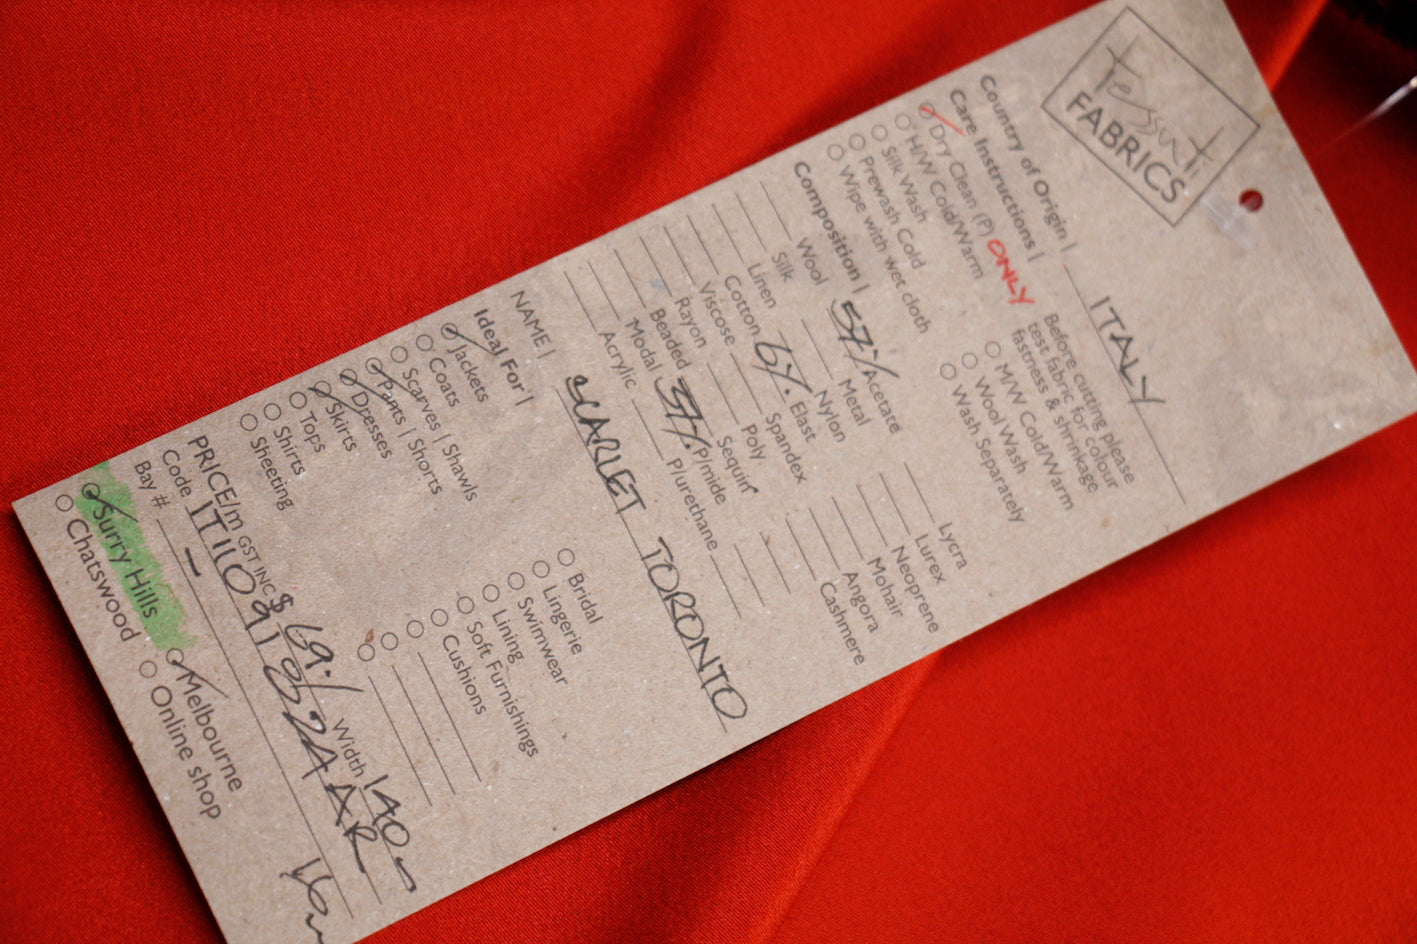 Tessuti
FABRICS
Country of Origin | ITALY
Care Instructions |
Dry Clean (P) ONLY
H/W Cold/Warm
Silk Wash
Prewash Cold
Wipe with wet cloth
Before cutting please
test fabric for colour
fastness & shrinkage
M/W Cold/Warm
Wool Wash
Wash Separately
Composition |
Wool 57% Acetate Lycra
Silk Metal Lurex
Linen Nylon Neoprene
Cotton 6% Elast Mohair
Viscose Spandex Angora
Rayon Poly Cashmere
Beaded Sequin
Modal 37% P/mide
Acrylic P/urethane
NAME | SCARLET TORONTO
Ideal For |
Jackets
Coats
Scarves | Shawls
Pants | Shorts
Dresses
Skirts
Tops
Shirts
Sheeting
Bridal
Lingerie
Swimwear
Lining
Soft Furnishings
Cushions
PRICE/m GST INC $ 69./ Width 140
Code IT11091824 AR
Bay #
Surry Hills
Melbourne
Chatswood
Online shop